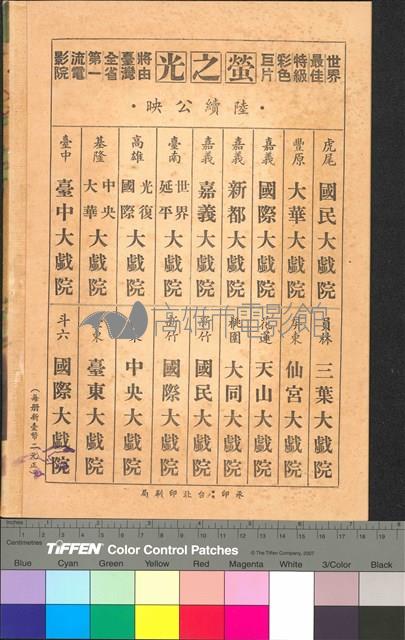 世界最佳特級彩色巨片
螢之光
將由臺灣全省第一流電影院
・陸續公映・
虎尾 國民大戲院
豐原 大華大戲院
嘉義 國際大戲院
嘉義 新都大戲院
嘉義 嘉義大戲院
臺南 世界 延平 大戲院
高雄 光復 國際 大戲院
基隆 中央 大華 大戲院
臺中 臺中大戲院
員林 三葉大戲院
屏東 仙宮大戲院
花蓮 天山大戲院
桃園 大同大戲院
新竹 國民大戲院
新竹 國際大戲院
中央大戲院
臺東大戲院
斗六 國際大戲院
(每册新臺幣二元正)
承印:台北印刷局
高雄市電影館
Inches
Centimetres
TIFFEN Color Control Patches
© The Tiffen Company, 2007
Blue Cyan Green Yellow Red Magenta White 3/Color Black